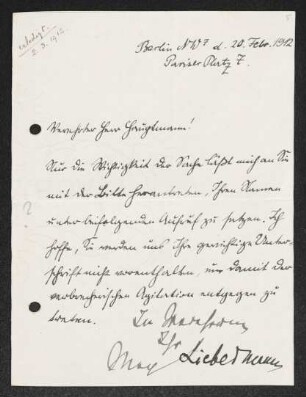 erledigt.
2.3.1912
Berlin NW7 d. 20. Febr. 1912
Pariser Platz 7.
Verehrter Herr Hauptmann!
Nur die Wichtigkeit der Sache läßt mich an Sie
mit der Bitte herantreten, Ihren Namen
unter beifolgenden Aufruf zu setzen. Ich
hoffe, Sie werden uns Ihre gewichtige Unter-
schrift nicht vorenthalten, um damit der
verbrecherischen Agitation entgegen zu
treten.
In
Ihr
Max Liebermann